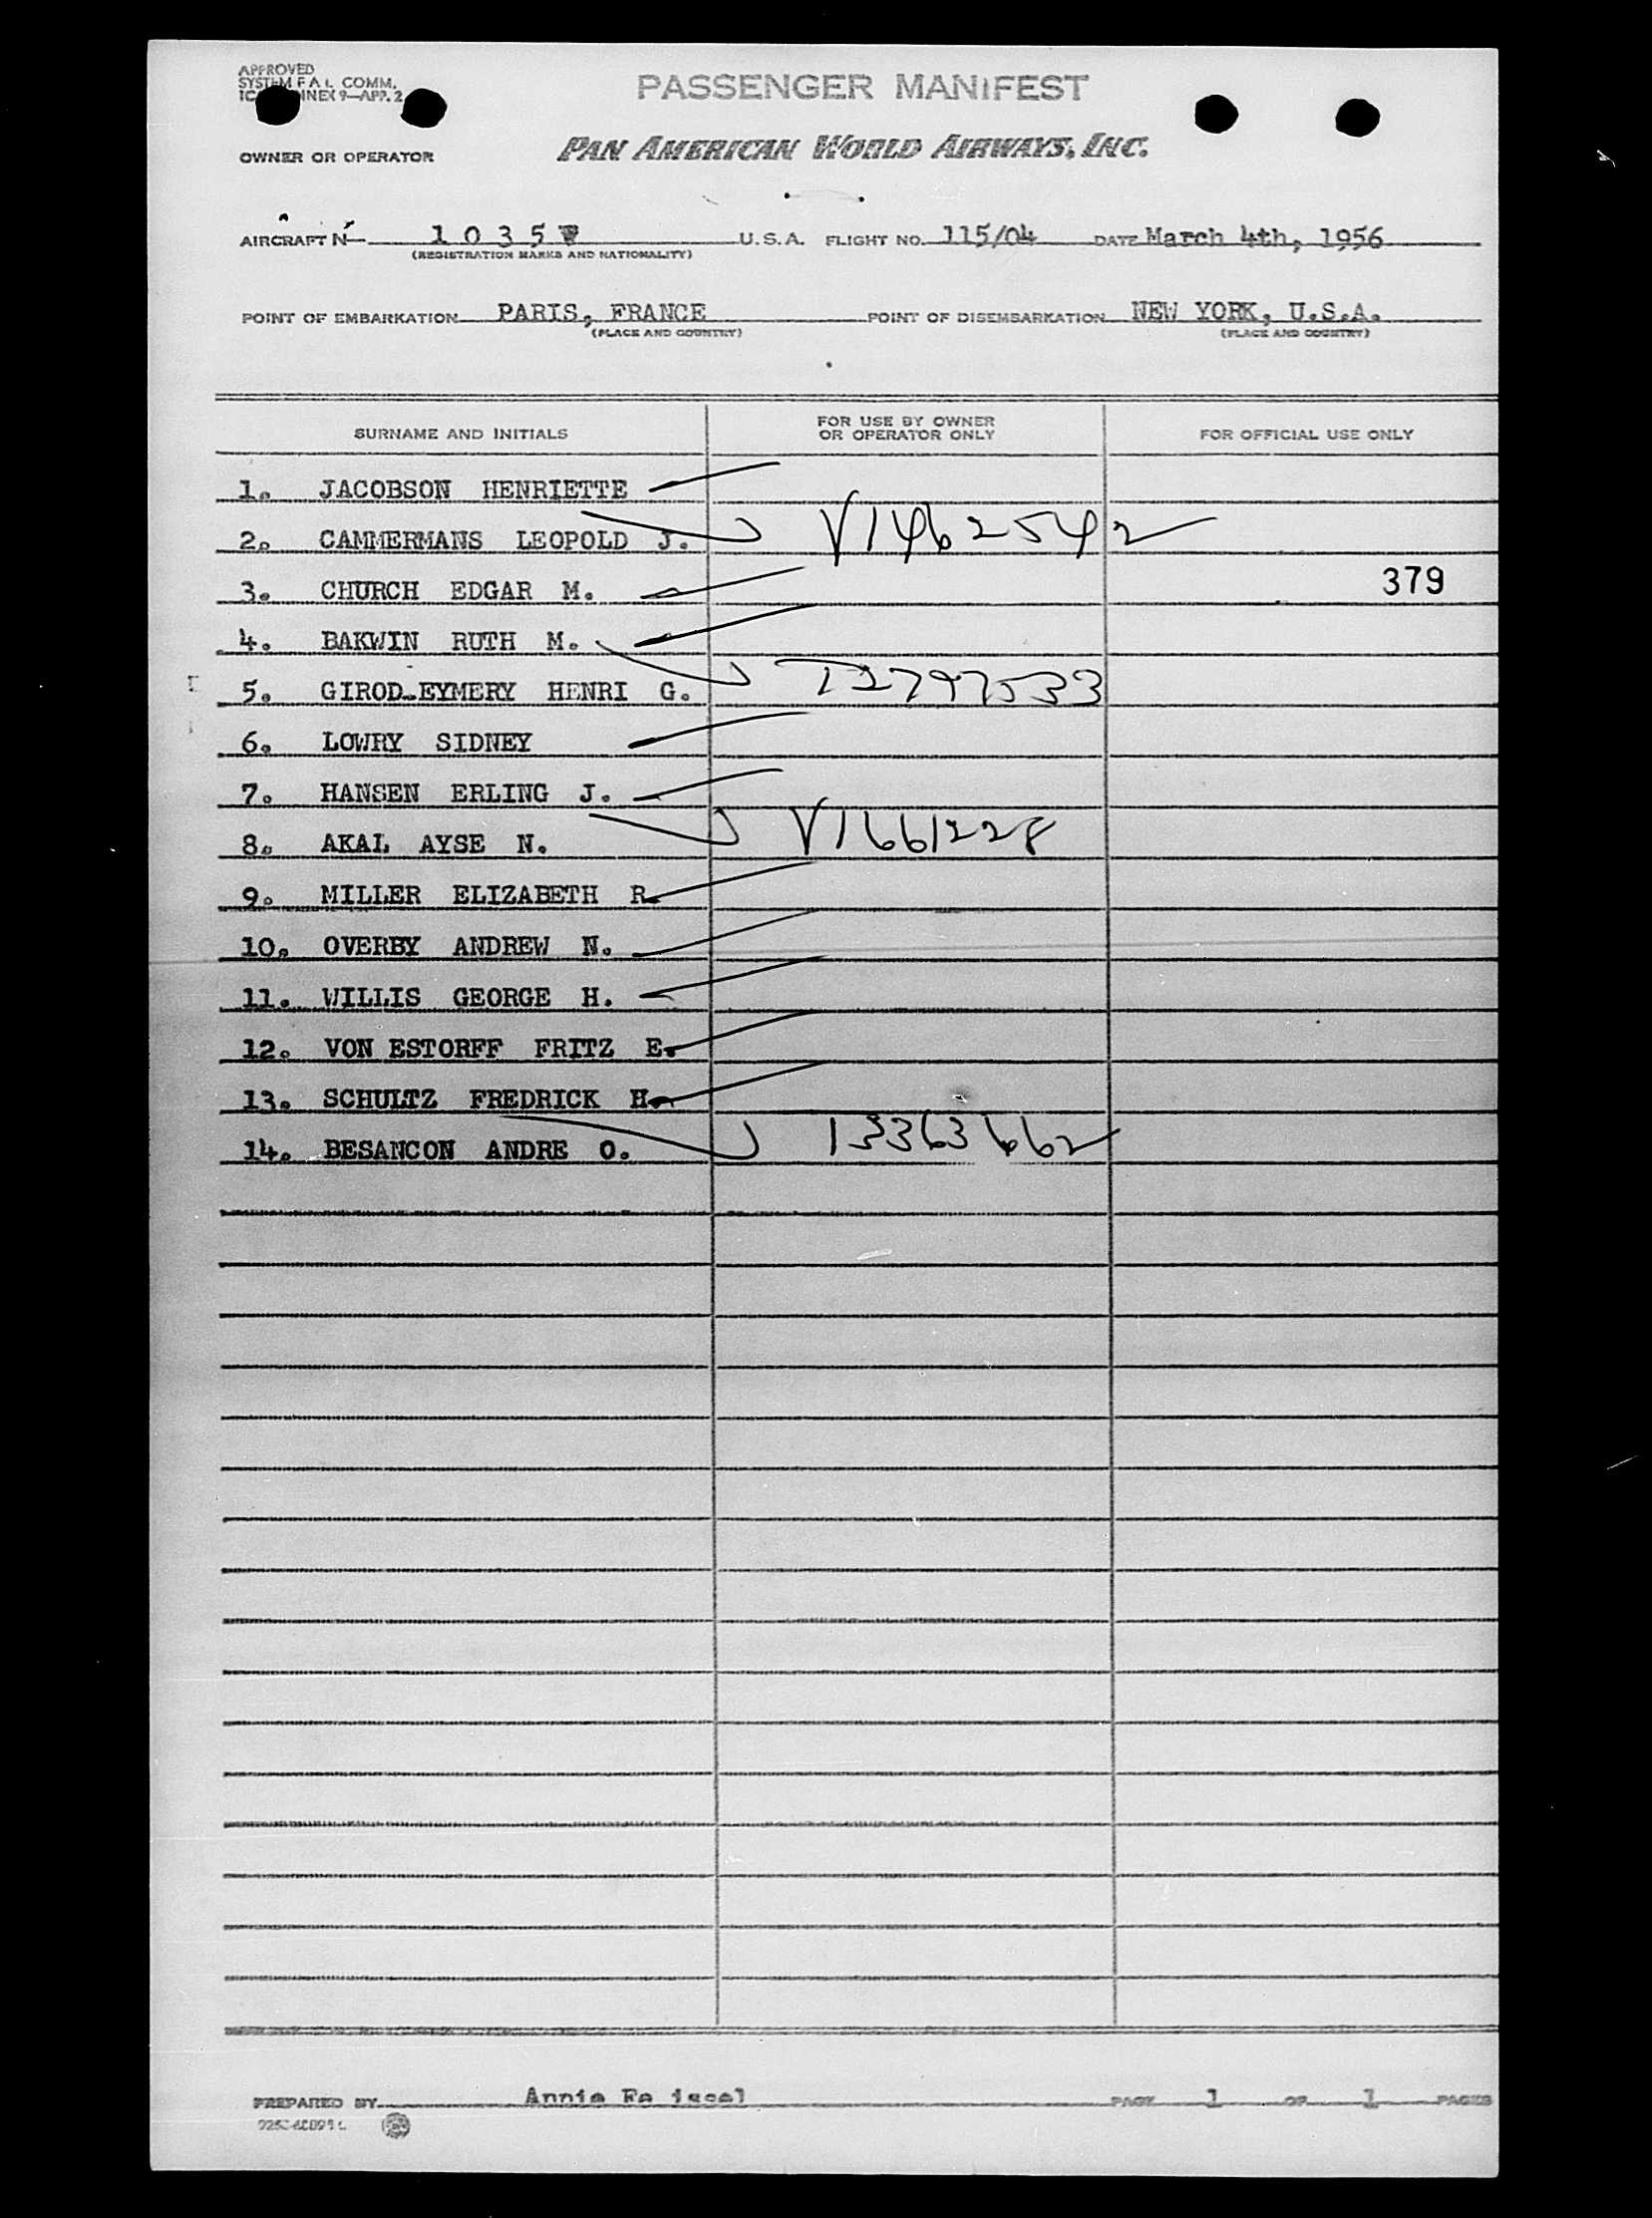 APPROVED
SYSTEM F A L COMM.
ANNEX 9—APP. 2
PASSENGER MANIFEST
OWNER OR OPERATOR PAN AMERICAN WORLD AIRWAYS, INC.
AIRCRAFT N 1 0 3 5 V U.S.A. FLIGHT NO. 115/04 DATE March 4th, 1956
(REGISTRATION MARKS AND NATIONALITY)
POINT OF EMBARKATION PARIS, FRANCE POINT OF DISEMBARKATION NEW YORK, U.S.A.
(PLACE AND COUNTRY) (PLACE AND COUNTRY)
SURNAME AND INITIALS FOR USE BY OWNER OR OPERATOR ONLY FOR OFFICIAL USE ONLY
1. JACOBSON HENRIETTE
2. CAMMERMANS LEOPOLD J. V1462542
3. CHURCH EDGAR M. 379
4. BAKWIN RUTH M.
5. GIROD-EYMERY HENRI G. T2797533
6. LOWRY SIDNEY
7. HANSEN ERLING J.
8. AKAL AYSE N. V1661228
9. MILLER ELIZABETH R
10. OVERBY ANDREW N.
11. WILLIS GEORGE H.
12. VON ESTORFF FRITZ E.
13. SCHULTZ FREDRICK H.
14. BESANCON ANDRE O. 13363662
PREPARED BY Annie PAGE 1 OF 1 PAGES